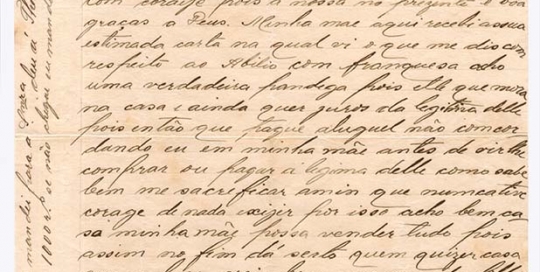 com coraje pois a nossa no prezente é boa
graças a Deus. Minha mãe aqui recebi a sua
estimada carta na qual vi o que me dis com
respeito ao Abilio com franquesa acho
uma verdadeira pandega pois elle que mora
na casa e ainda quer juros da legitima delle
pois então que pague aluguel não concor
dando eu em minha mãe antes de vir lhe
comprar ou pagar a legima delle como sabe
bem me sacrificar amin que nunca tive
corage de nada exizer por isso acho bem ca
sa minha mãe possa vender tudo pois
assim no fim dá serto quem quizer casa
mandei para a
1000 r. e não chegou eu mando